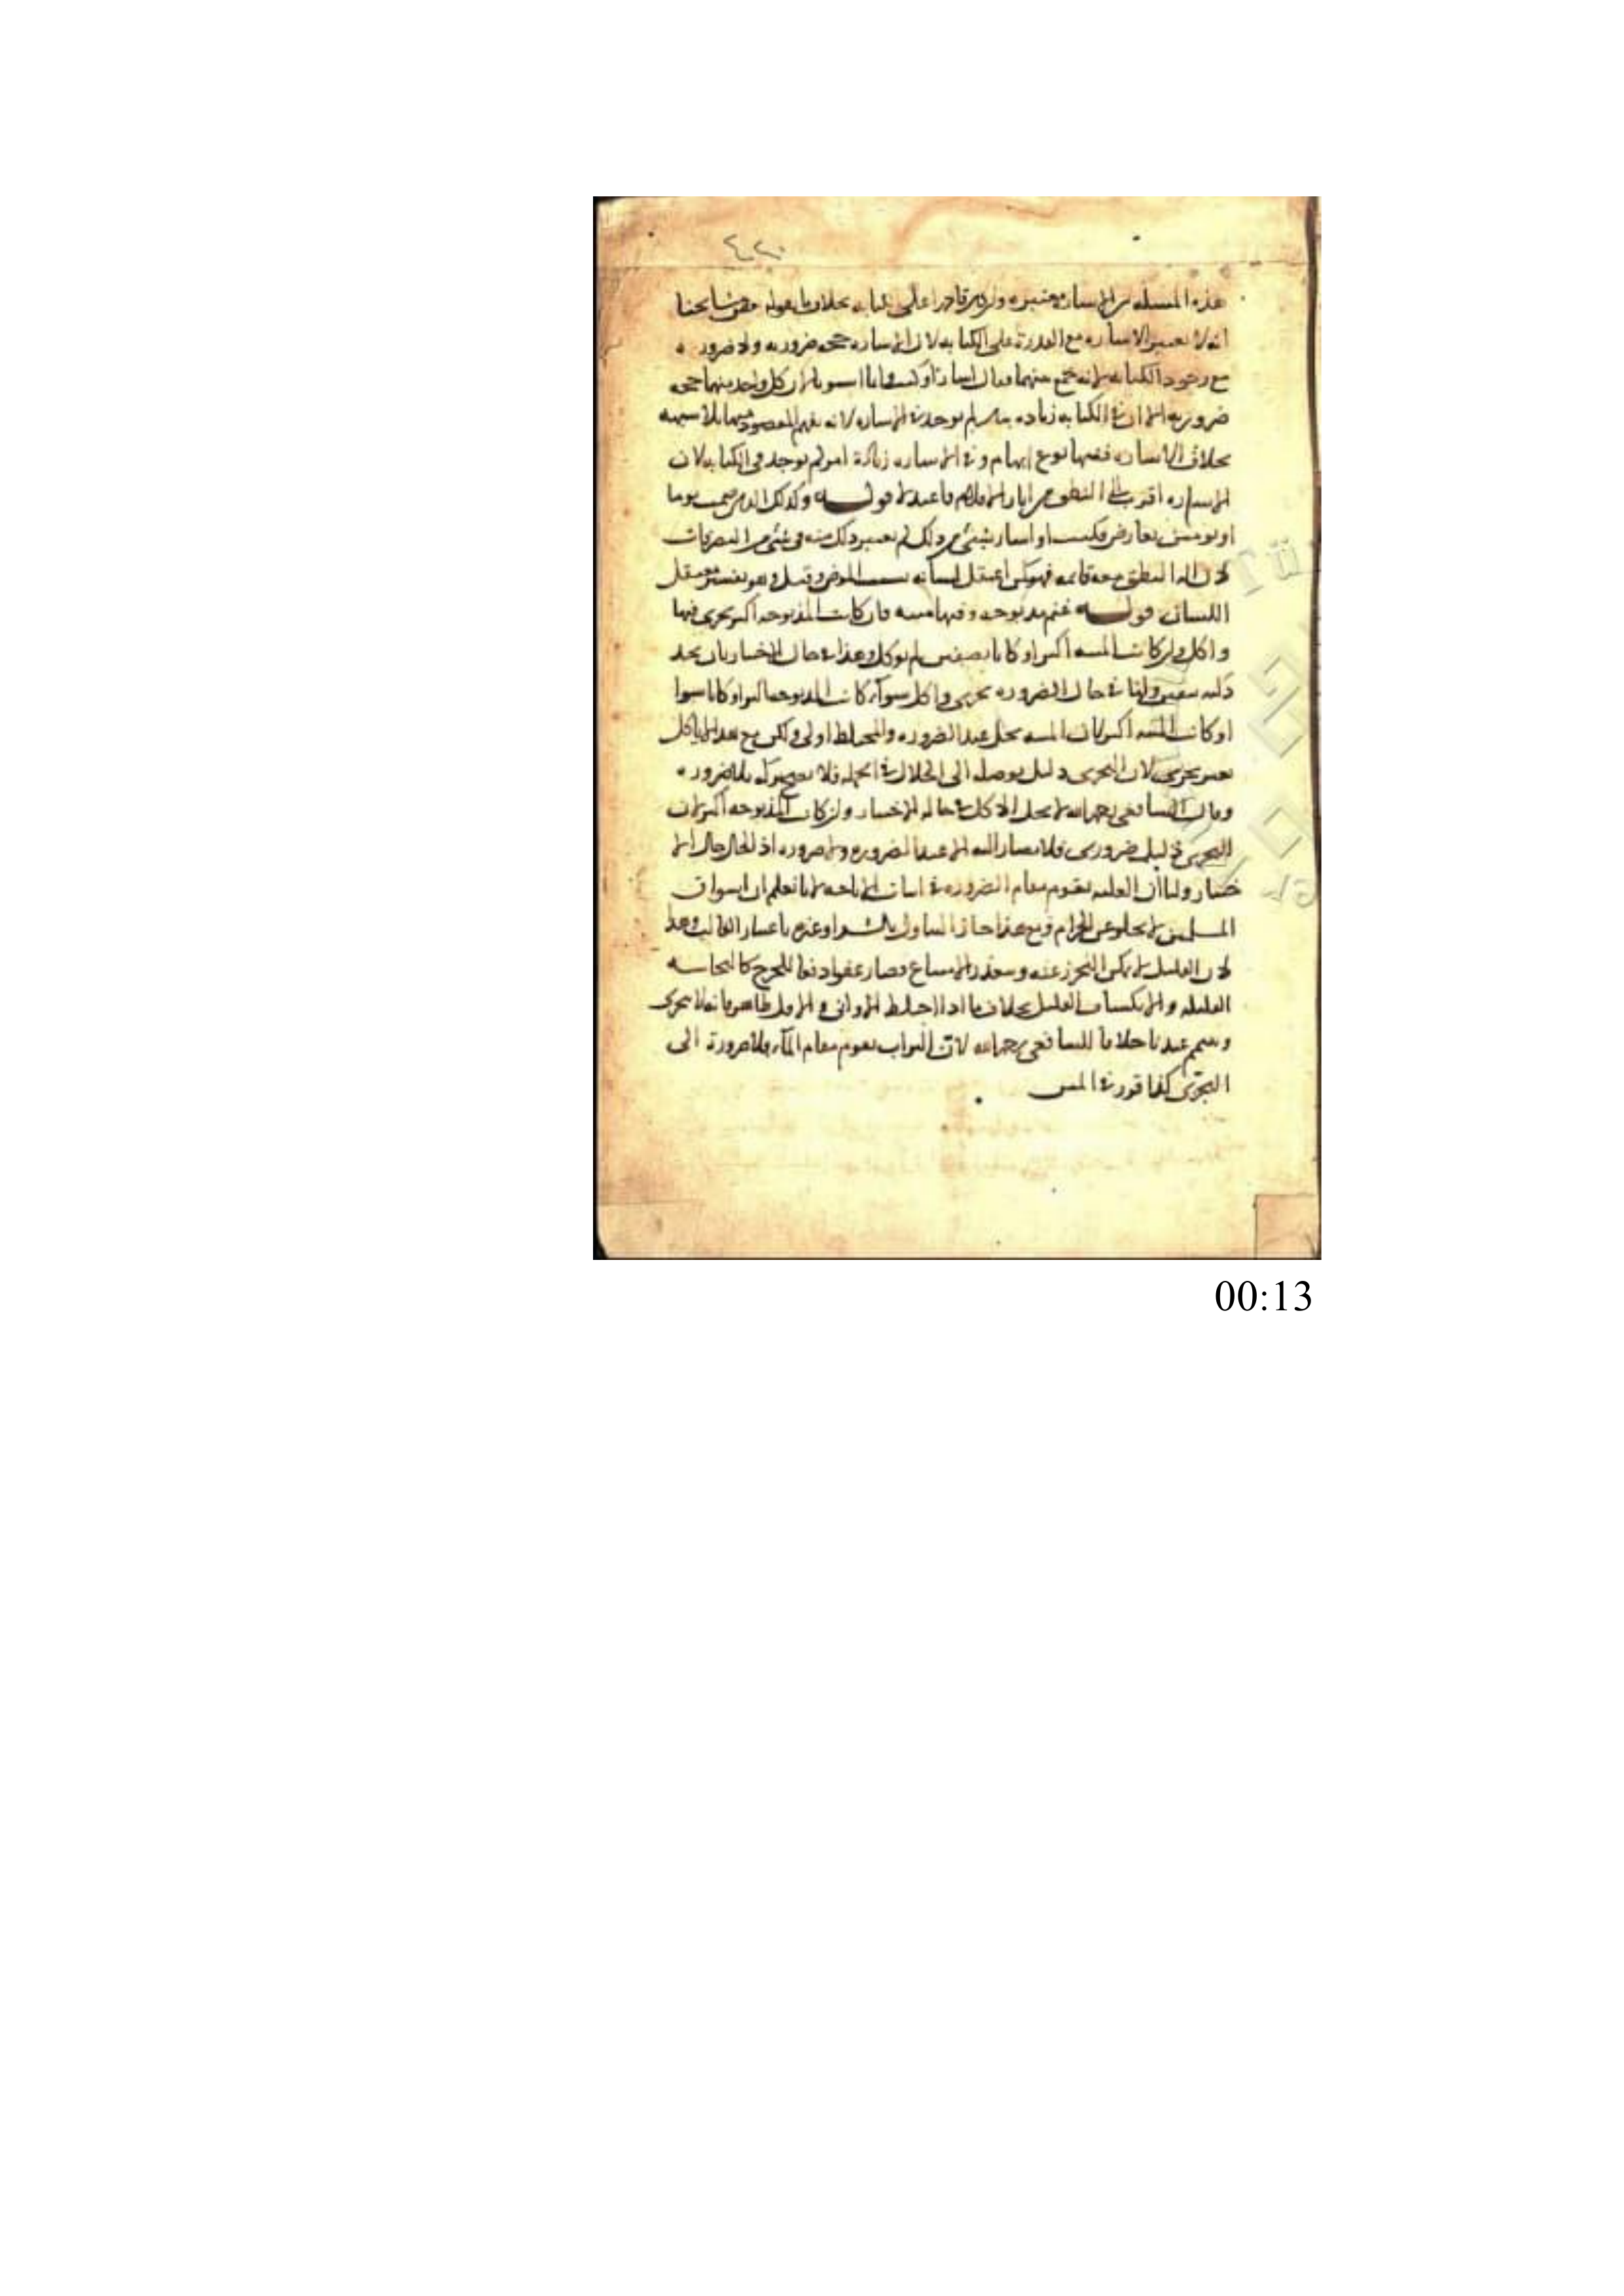 ٤٢٠
هذه المسله ان الاساره معتبره وان كان قادرا على الكتابه بخلاف ما يقوله بعض مشايخنا
انه لا تعتبر الاساره مع القدرة على الكتابه لان الاساره حجه ضروريه ولا ضروره
مع وجود الكتابه لانه جمع بينهما وقال اشار او كتب وانما استويا لان كل واحد منهما حجه
ضروريه الا ان في الكتابه زياده بيان لم يوجد في الاساره لانه يفهم المقصود منها بلا شبهه
بخلاف الاساره ففيها نوع ابهام وفي الاساره زيادة امر لم يوجد في الكتابه لان
الاساره اقرب الى النطق من اثار الاقلام فاعتدلا قوله وكذلك الذي صمت يوما
او يومين بعارض فكتب او اشار بشئ من ذلك لم يعتبر ذلك منه في شئ من التصرفات
لان اله النطق معه قائمه فهو كمن اعتقل لسانه بسبب المرض وقيل وهو تفسير معتقل
اللسان قوله غنم مذبوحه وفيها ميته فان كانت المذبوحه اكثر تحرى فيها
واكل وان كانت الميته اكثر او كانا نصفين لم يوكل وهذا في حال الاختيار بان يجد
ذكيه بيقين واما في حال الضروره تحرى واكل سوآ كانت المذبوحه اكثر او كانا سوا
او كانت الميته اكثر لان الميته تحل عند الضروره والمختلط اولى ولكن مع هذا لا ياكل
بغير تحرى لان التحرى دليل يوصله الى الحلال في الجمله فلا يصح تركه بلا ضروره
وقال الشافعى رحمه الله لا يحل الاكل في حاله الاختيار وان كان المذبوحه اكثر لان
التحرى دليل ضرورى فلا يصار اليه الا عند الضروره ولا ضروره اذ الحال حال الا
ختيار ولنا ان الغلبه تقوم مقام الضروره في اثبات الاباحه لانا نعلم ان اسواق
المسلمين لا تخلو عن الحرام ومع هذا جاز التناول بالشرا وغيره باعتبار الغالب وهذا
لان القليل لا يمكن التحرز عنه ويتعذر الامتناع فصار عفوا دفعا للحرج كالنجاسه
القليله والانكشاف القليل بخلاف ما اذا اختلط الاوانى والاقل طاهر فانه لا يتحرى
ويتيمم عندنا خلافا للشافعى رحمه الله لان التراب يقوم مقام المآء ولا ضرورة الى
التحرّى كذا قرر في المتن
00:13